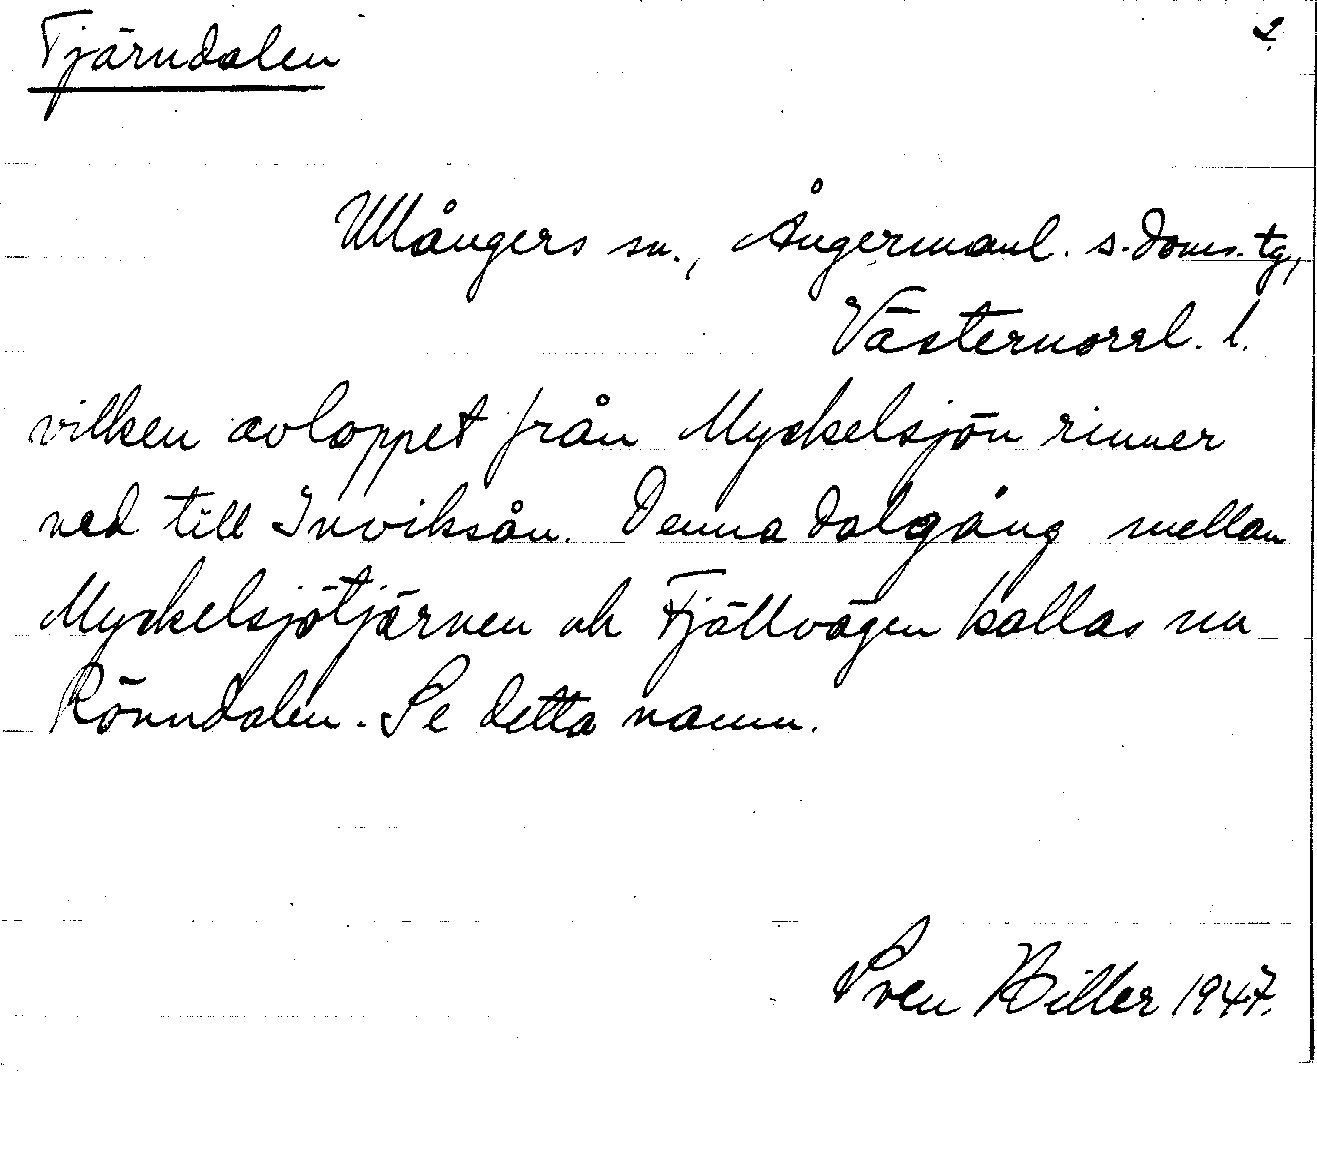 Tjärndalen 2.
Ullångers sn., Ångermanl. s. doms. tg,
Västernorrl. l.
vilken avloppet från Myckelsjön rinner
ned till Inviksån. Denna dalgång mellan
Myckelsjötjärnen och Fjällvägen kallas nu
Rönndalen. Se detta namn.
Sven Hiller 1947.